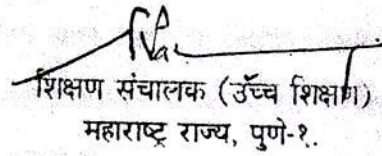 शिक्षण संचालक (उच्च शिक्षण)
महाराष्ट्र राज्य, पुणे-१.